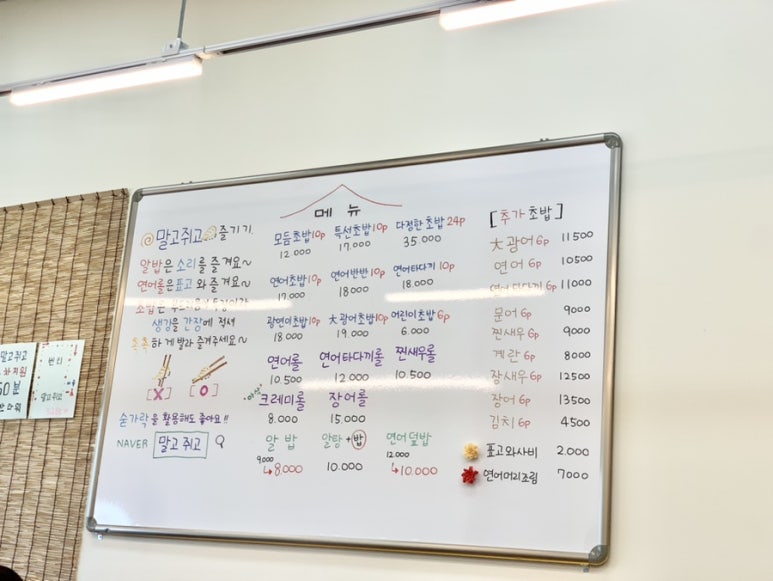 말고쥐고 즐기기.
알밥은 소리를 즐겨요~
연어롤은 표고와 즐겨요~
초밥은
생강을 간장에 적셔
촉촉하게 발라 즐겨주세요~
[X] [O]
숟가락을 활용해도 좋아요!!
NAVER 말고쥐고
메뉴
모듬초밥10p 특선초밥10p 다정한초밥24p
12.000 17.000 35.000
연어초밥10p 연어반반10p 연어타다끼10p
17.000 18.000 18.000
광연이초밥10p 大광어초밥10p 어린이초밥6p
18.000 19.000 6.000
연어롤 연어타다끼롤 찐새우롤
10.500 12.000 10.500
크레미롤 장어롤
8.000 15.000
알밥 알탕+밥 연어덮밥
9.000 12.000
↳8.000 10.000 ↳10.000
[추가초밥]
大광어6p 11500
연어 6p 10500
연어타다끼6p 11000
문어 6p 9000
찐새우6p 9000
계란 6p 8000
장새우6p 12500
장어 6p 13500
김치 6p 4500
표고와사비 2.000
연어머리조림 7000
말고쥐고
번리